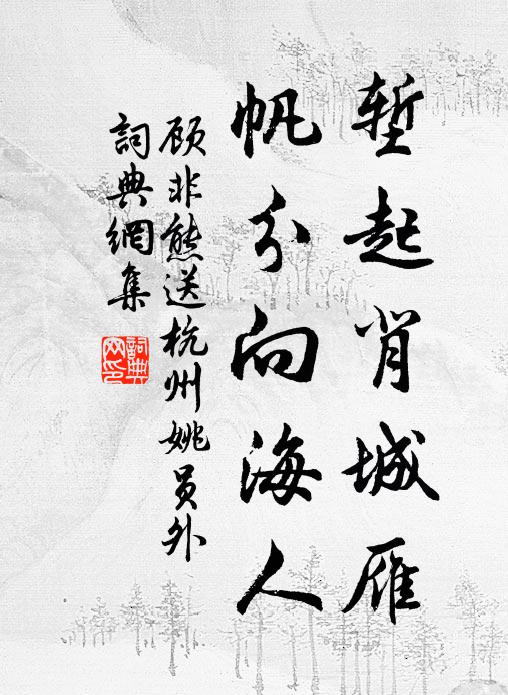 堑起背城雁
帆分向海人
顾非熊送杭州姚员外
词典網集
詞典網印